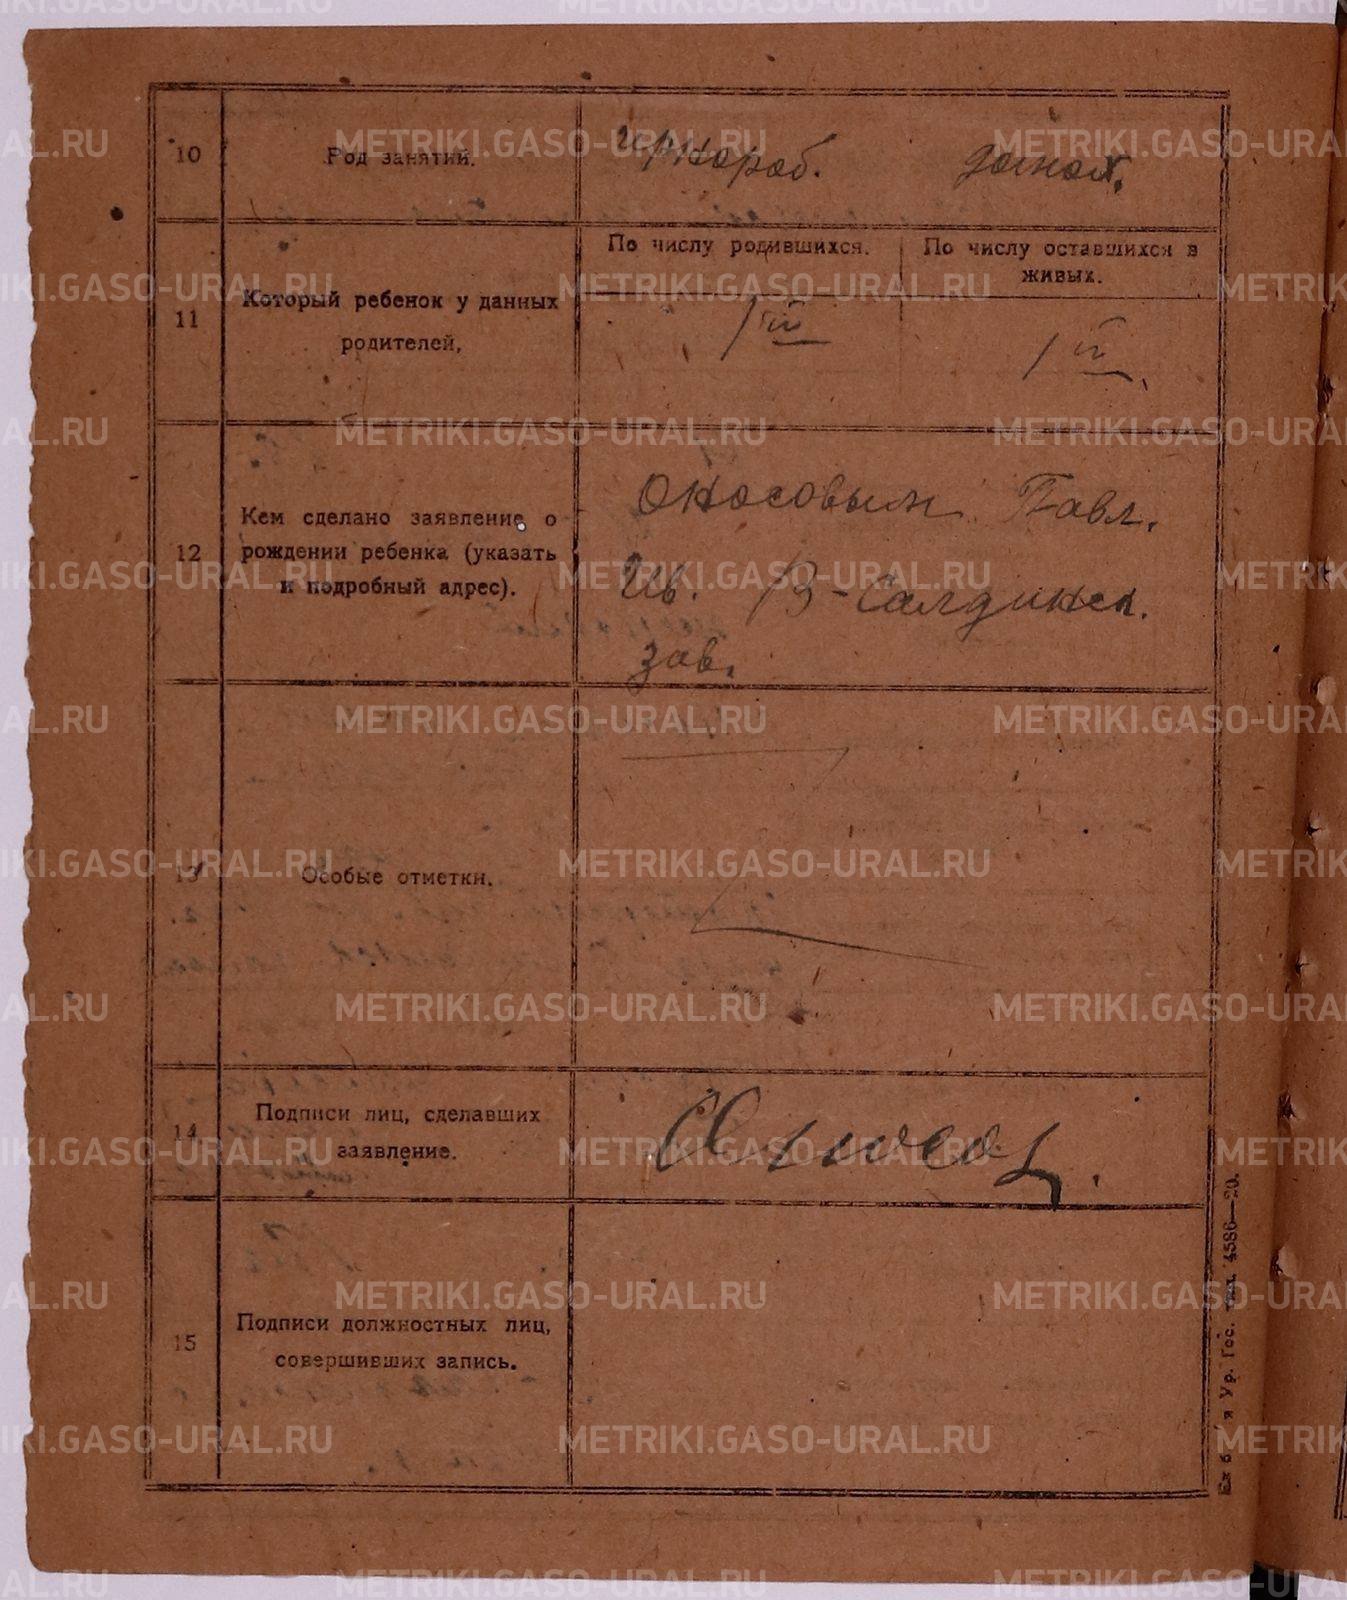 10 Род занятий. чернораб. домох.
11 Который ребенок у данных родителей,
По числу родившихся. По числу оставшихся в живых.
1ый 1ый.
12 Кем сделано заявление о рождении ребенка (указать и подробный адрес).
Оносовым Павл.
Ив. В-Салдинск.
зав.
13 Особые отметки.
14 Подписи лиц, сделавших заявление.
15 Подписи должностных лиц, совершивших запись.
Ур. Гос. тип. 4586—20.
METRIKI.GASO-URAL.RU